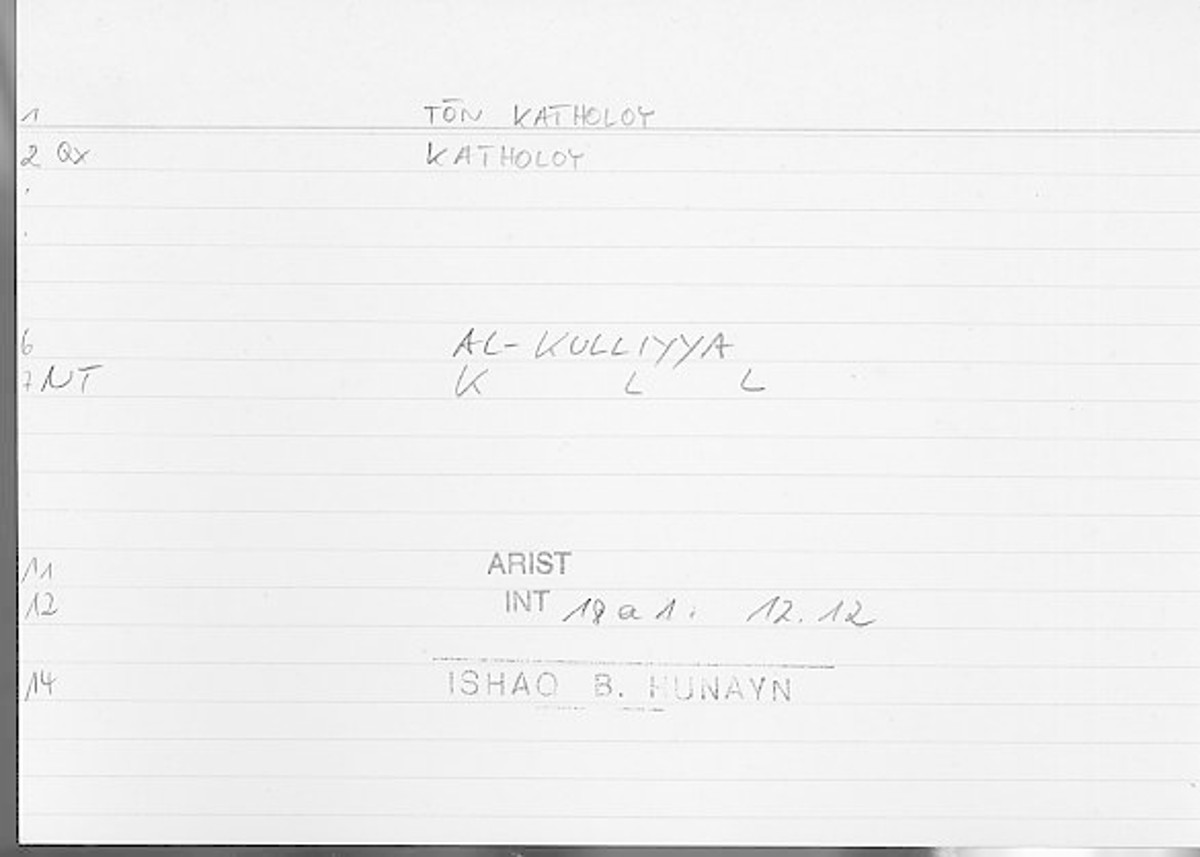 1 TŌN KATHOLOY
2 Qx KATHOLOY
6 AL-KULLIYYA
7 NT K L L
11 ARIST
12 INT 18 a 1. 12.12
14 ISHAQ B. HUNAYN